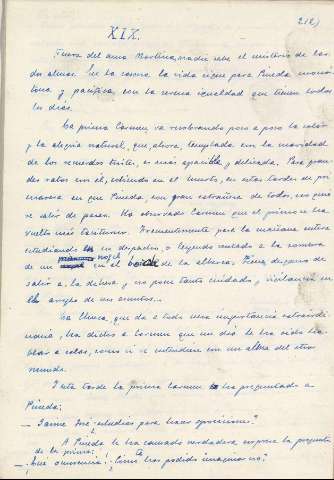 212)
XIX.
Fuera del ama Martina, nadie sabe el misterio de las
dos almas. En la casona la vida sigue para Pineda monó-
tona y pacífica, con la serena igualdad que tienen todos
los días.
La prima Carmen va recobrando poco a poco la color
y la alegría natural, que, ahora, templada con la suavidad
de los recuerdos tristes, es más apacible y delicada. Pasa gran-
des ratos con él, cosiendo en el huerto, en estas tardes de pri-
mavera en que Pineda, con gran extrañeza de todos, no quie-
re salir de paseo. Ha observado Carmen que el primo se ha
vuelto más taciturno. Frecuentemente pasa la mañana entera
estudiando en su despacho, o leyendo sentado a la sombra
de un nogal en el borde de la alberca. Tiene dejano de
salir a la dehesa, y no pone tanto cuidado y vigilancia en
el arreglo de sus asuntos...
La Chuca, que da a todo una importancia extraordi-
naria, ha dicho a Carmen que un día le ha oído ha-
blar a solas, como si se entendiera con un alma del otro
mundo.
Esta tarde la prima Carmen ha preguntado a
Pineda:
— Jaime José ¿estudias para hacer oposiciones?
A Pineda le ha causado verdadera sorpresa la pregunta
de la prima.
— ¡Qué ocurrencia! ¿Cómo te has podido imaginar no?